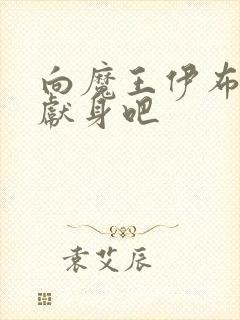 向魔王伊布
献身吧
袁艾辰